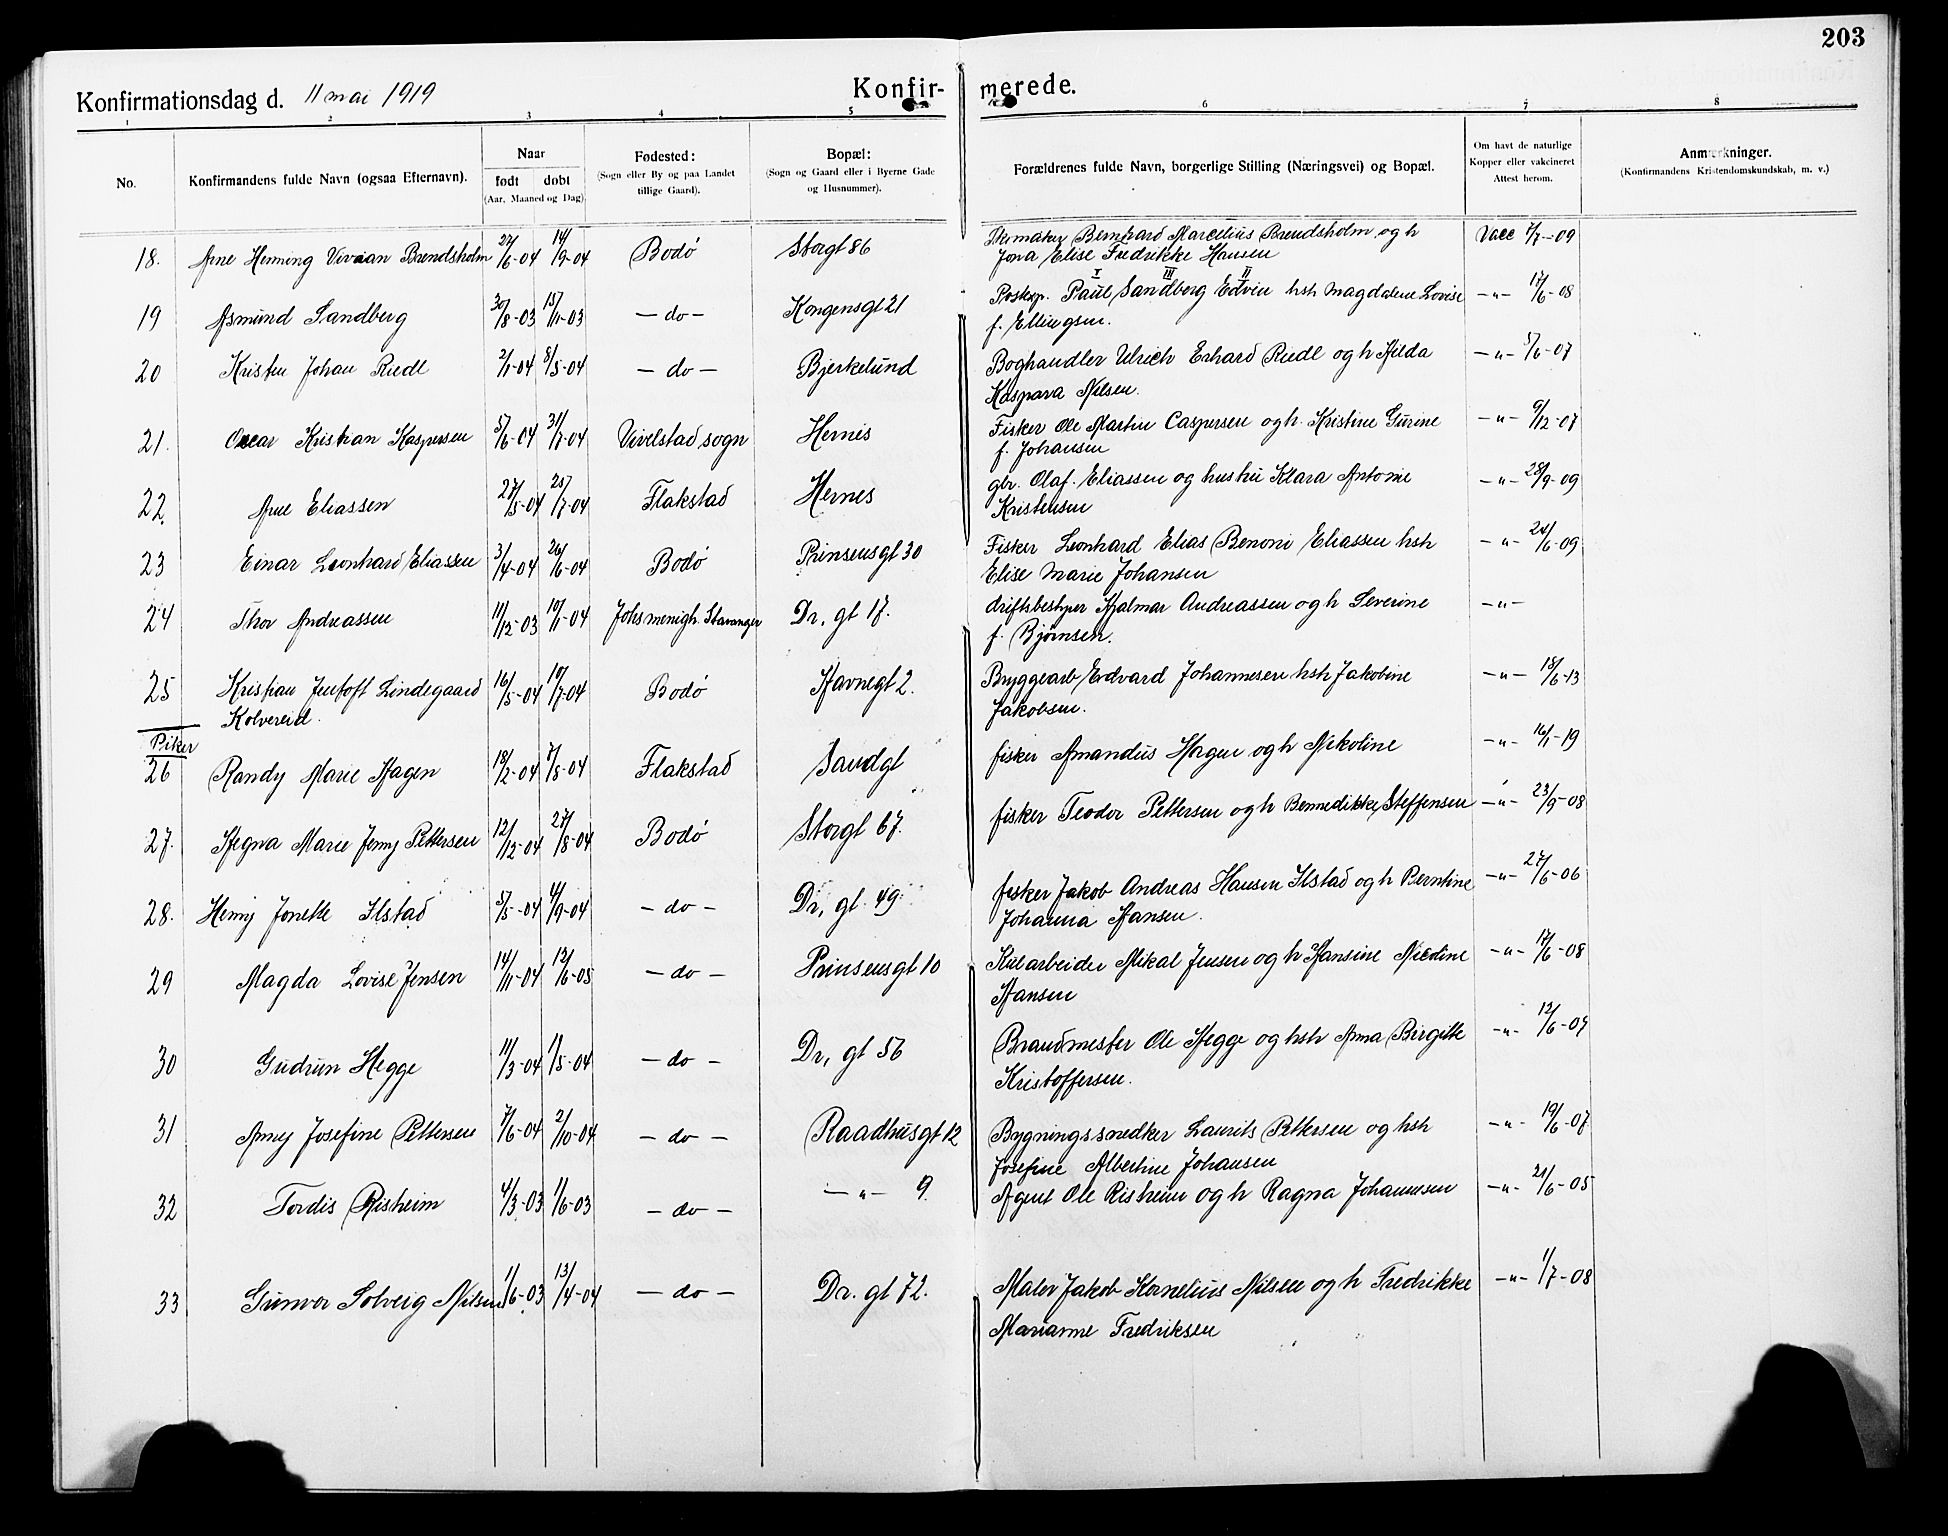 203
Konfirmationsdag d. 11 mai 1919 Konfir- merede.
1 2 3 4 5 6 7 8
No. Konfirmandens fulde Navn (ogsaa Efternavn). Naar født døbt (Aar, Maaned og Dag). Fødested: (Sogn eller By og paa Landet tillige Gaard). Bopæl: (Sogn og Gaard eller i Byerne Gade og Husnummer). Forældrenes fulde Navn, borgerlige Stilling (Næringsvei) og Bopæl. Om havt de naturlige Kopper eller vakcineret Attest herom. Anmærkninger. (Konfirmandens Kristendomskundskab, m. v.)
18. Arne Henning Vivian Brendsholm 27/6-04 14/9-04 Bodø Storgt 86 Bernhard Marcelius Brendsholm og h Vacc 1/7-09
Jona Elise Fredrikke Hansen
I III II
19 Asmund Sandberg 30/8-03 15/11-03 -do- Kongensgt 21 Postexp. Paul Sandberg Edvin hsh Magdalene Lovise -"- 17/6-08
f. Ellingsen.
20 Kristen Johan Riedl 2/1-04 8/5-04 -do- Bjerkelund Boghandler Ulrich Erhard Riedl og h Hilda -"- 5/6-07
Kaspara Nilsen.
21. Oscar Kristian Kaspersen 5/6-04 31/7-04 sogn Hernis Fisker Ole Martin Caspersen og h. Kristine Gurine -"- 9/12-07
f. Johansen
22. Arne Eliassen 27/5-04 25/7-04 Flakstad Hernes gbr. Olaf Eliassen og hustru Klara Antonie -"- 28/9-09
Kristensen
23 Einar Leonhard Eliassen 3/4-04 26/6-04 Bodø Prinsensgt 30 Fisker Leonhard Elias Benoni Eliassen hsh -"- 24/6-09
Elise Marie Johansen
24 Thor Andreassen 11/12-03 10/1-04 Johs menigh. Stavanger Dr, gt 17. driftsbestyrer Hjalmar Andreassen og h Severine -"-
f. Bjørnsen.
25 Kristian Jentoft Lindegaard 16/5-04 10/7-04 Bodø Havnegt 2. Bryggearb Edvard Johannesen hsh Jakobine -"- 18/6-13
Kolvereid. Jakobsen.
Piker
26 Randy Marie Hagen 18/2-04 7/8-04 Flakstad Sandgt fisker Amandus Hagen og h Nikoline -"- 16/1-19
27. Hegna Marie Jenny Pettersen 12/12-04 27/8-04 Bodø Storgt 67. fisker Teodor Pettersen og h Bennedikke Steffensen -"- 23/9-08
28. Henny Jonette Ilstad 5/5-04 4/9-04 -do- Dr, gt 49. fisker Jakob Andreas Hansen Ilstad og h Berntine -"- 27/6-06
Johanna Hansen.
29 Magda Lovise Jensen 14/11-04 12/6-05 -do- Prinsensgt 10 Kularbeider Mikal Jensen og h Hansine Nicoline -"- 17/6-08
Hansen
30 Gudrun Hegge 11/3-04 1/5-04 -do- Dr, gt 56 Brandmester Ole Hegge og hsh Anna Birgitte -"- 12/6-07
Kristoffersen.
31 Anny Josefine Pettersen 7/6-04 2/10-04 -do- Raadhusgt 12 Bygningssnedker Laurits Pettersen og hsh -"- 19/6-07
Josefine Albertine Johansen
32 Tordis Risheim 4/3-03 1/6-03 -do- -"- 9. Agent Ole Risheim og h Ragna Johannesen -"- 21/6-05
33 Gunvor Solveig Nilsen 1/6-03 13/4-04 -do- Dr. gt 72. Maler Jakob Kornelius Nilsen og h Fredrikke -"- 1/7-08
Marianne Fredriksen